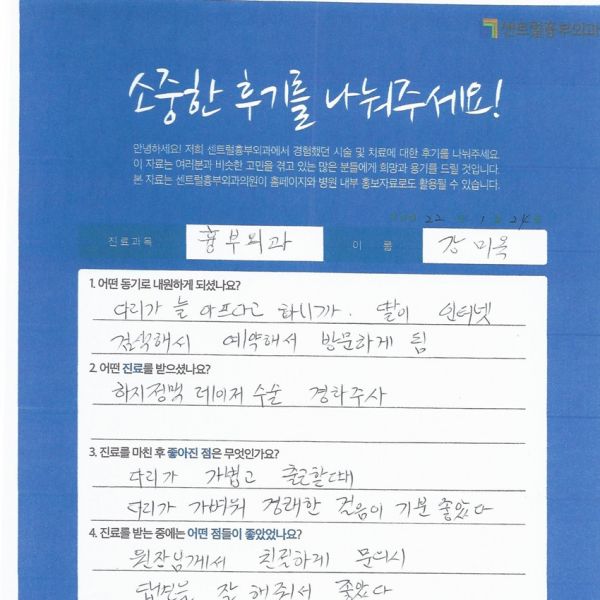 센트럴흉부외과
소중한 후기를 나눠주세요!
안녕하세요! 저희 센트럴흉부외과에서 경험했던 시술 및 치료에 대한 후기를 나눠주세요.
이 자료는 여러분과 비슷한 고민을 겪고 있는 많은 분들에게 희망과 용기를 드릴 것입니다.
본 자료는 센트럴흉부외과의원이 홈페이지와 병원 내부 홍보자료로도 활용될 수 있습니다.
22 1 24
진료과목 흉부외과 이 름 강미옥
1. 어떤 동기로 내원하게 되셨나요?
다리가 늘 아프다고 하니까. 딸이 인터넷
검색해서 예약해서 방문하게 됨
2. 어떤 진료를 받으셨나요?
하지정맥 레이저 수술 경화주사
3. 진료를 마친 후 좋아진 점은 무엇인가요?
다리가 가볍고 출근할때
다리가 가벼워 경쾌한 걸음이 기분 좋았다
4. 진료를 받는 중에는 어떤 점들이 좋았었나요?
원장님께서 친절하게 문의시
답변을 잘 해줘서 좋았다